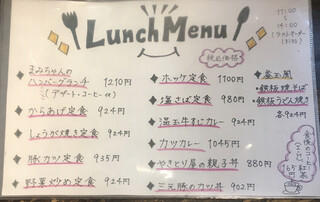 Lunch Menu
税込価格
11:00
〜
14:00
(ラストオーダー
まみちゃんの
ハンバーグランチ 1210円
(デザート・コーヒー付)
からあげ定食 924円
しょうが焼き定食 924円
豚カツ定食 935円
野菜炒め定食 924円
ホッケ定食 1100円
塩さば定食 980円
温玉牛すじカレー 924円
カツカレー 1045円
やきとり屋の親子丼 880円
三元豚のカツ丼 902円
釜玉風
・鉄板焼そば
・鉄板うどん焼き
各924円
食後の
165円
紅茶